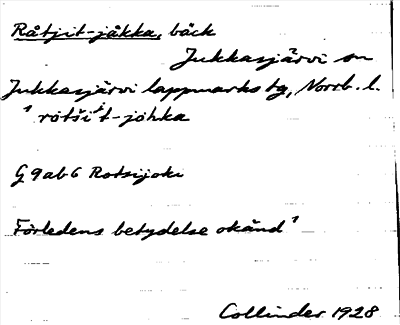 Råtjit-jåkka, bäck
Jukkasjärvi sn
Jukkasjärvi lappmarks tg, Norrb. l.
' rotši't-johka
G 9ab6 Rotsijoki
Förledens betydelse okänd'
Collinder 1928